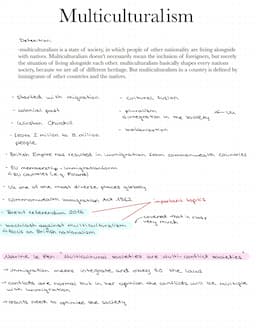 Multiculturalism
Definition
-multiculturalism is a state of society, in which people of other nationality are living alongside
with natives. Multiculturalism doesn't necessarily mean the inclusion of foreigners, but merely
the situation of living alongside each other. multiculturalism basically shapes every nations
society, because we are all of different heritage. But multiculturalism in a country is defined by
immigrants of other countries and the natives.
- started with migration
- colonial past
- Winston Churchill
- from 2 million to 8 million
people
- cultural fusion
- pluralism
- integration in the society
- British Empire has resulted in immigration from commonwealth countries
- EU membership - immigration from
EU countries (e.g. Poland)
- UK one of the most diverse places globally
- Commonwealth Immigration Act 1962
important topics
- Brexit referendum 2016
covered that in class
very much
- backlash against multiculturalism
& focus on British nationalism
Marine le Pen: "Multicultural societies are multi-conflict societies"
→ immigration means integrate and obey to the laws
→ conflicts are normal but in her opinion the conflicts will be multiple
with immigration
→ results need to optimise the society